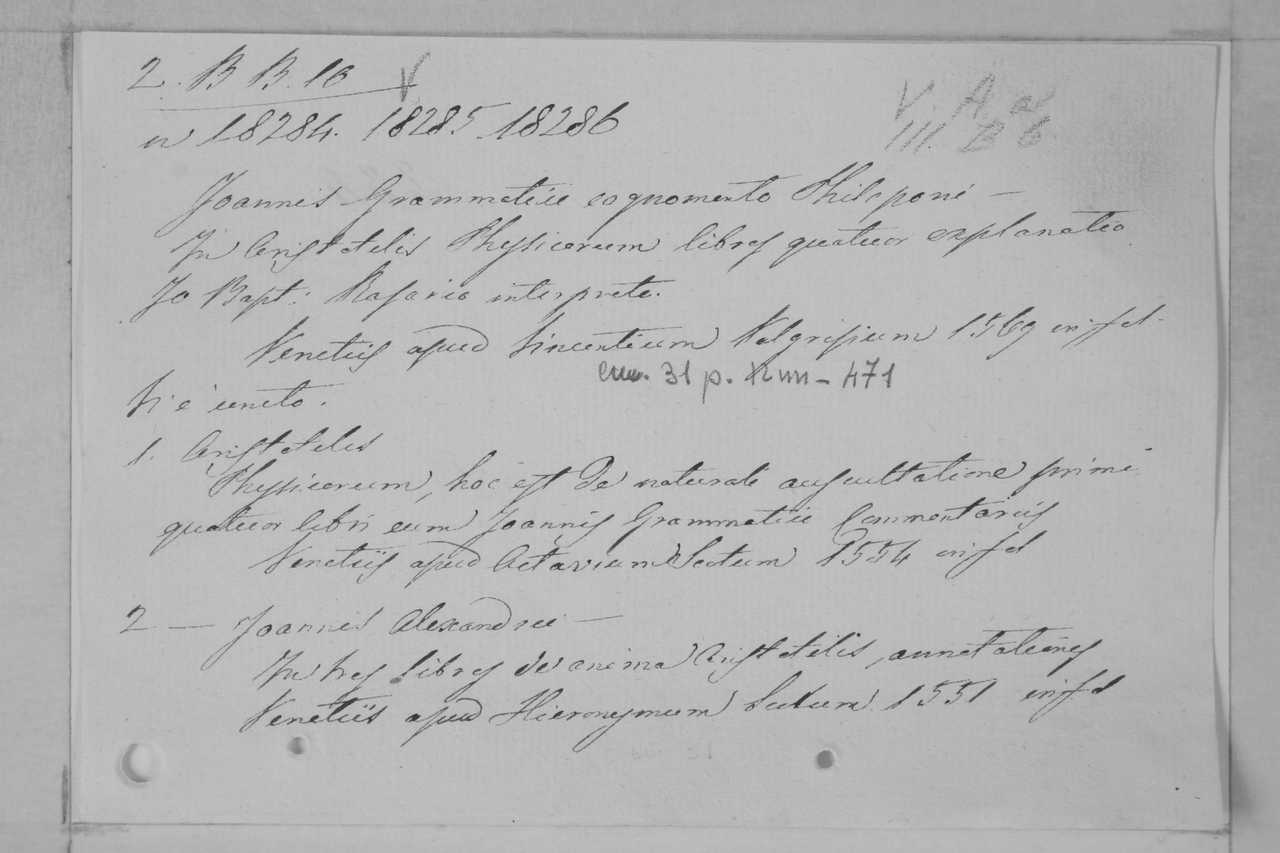 2. B B. 16 V
n 18284. 18285 18286
V. A a
III. B b
Joannis Grammatici cognomento Philoponi —
In Aristotelis Physicorum libros quatuor explanatio
Jo Bapt: Rasario interprete.
Venetiis apud Vincentium Valgrisium 1569 in fol.
31 p. - 471
Vi è unito.
1. Aristotelis
Physicorum, hoc est de naturali auscultatione primi
quatuor libri cum Joannis Grammatici Commentariis
Venetiis apud Octavium Scotum 1554 in fol
2 — Joannis Alexandrei —
In tres libros de anima Aristotelis, annotationes
Venetiis apud Hieronymum Scotum 1551 in fol